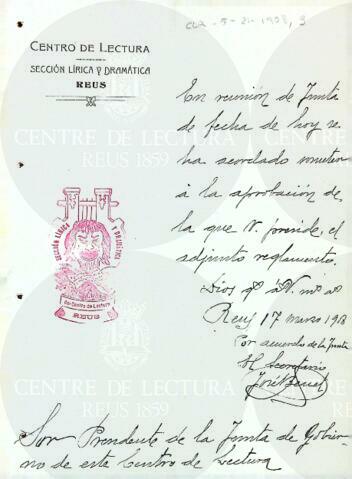 CLR-5-21-1908, 3
CENTRO DE LECTURA
SECCIÓN LÍRICA Y DRAMÁTICA
REUS
En reunión de Junta
de fecha de hoy se
ha acordado someter
á la aprobación de
la que V. preside, el
adjunto reglamento.
Dios gᵉ á V. mˢ aˢ
Reus 17 marzo 1908
Por acuerdo de la Junta
El Secretario
José
SECCIÓN LÍRICA Y DRAMÁTICA
del Centro de Lectura
REUS
Sor Presidente de la Junta de Gobier-
no de este Centro de Lectura
CENTRE DE LECTURA
REUS 1859
CENTRE DE LECTURA
REUS 1859